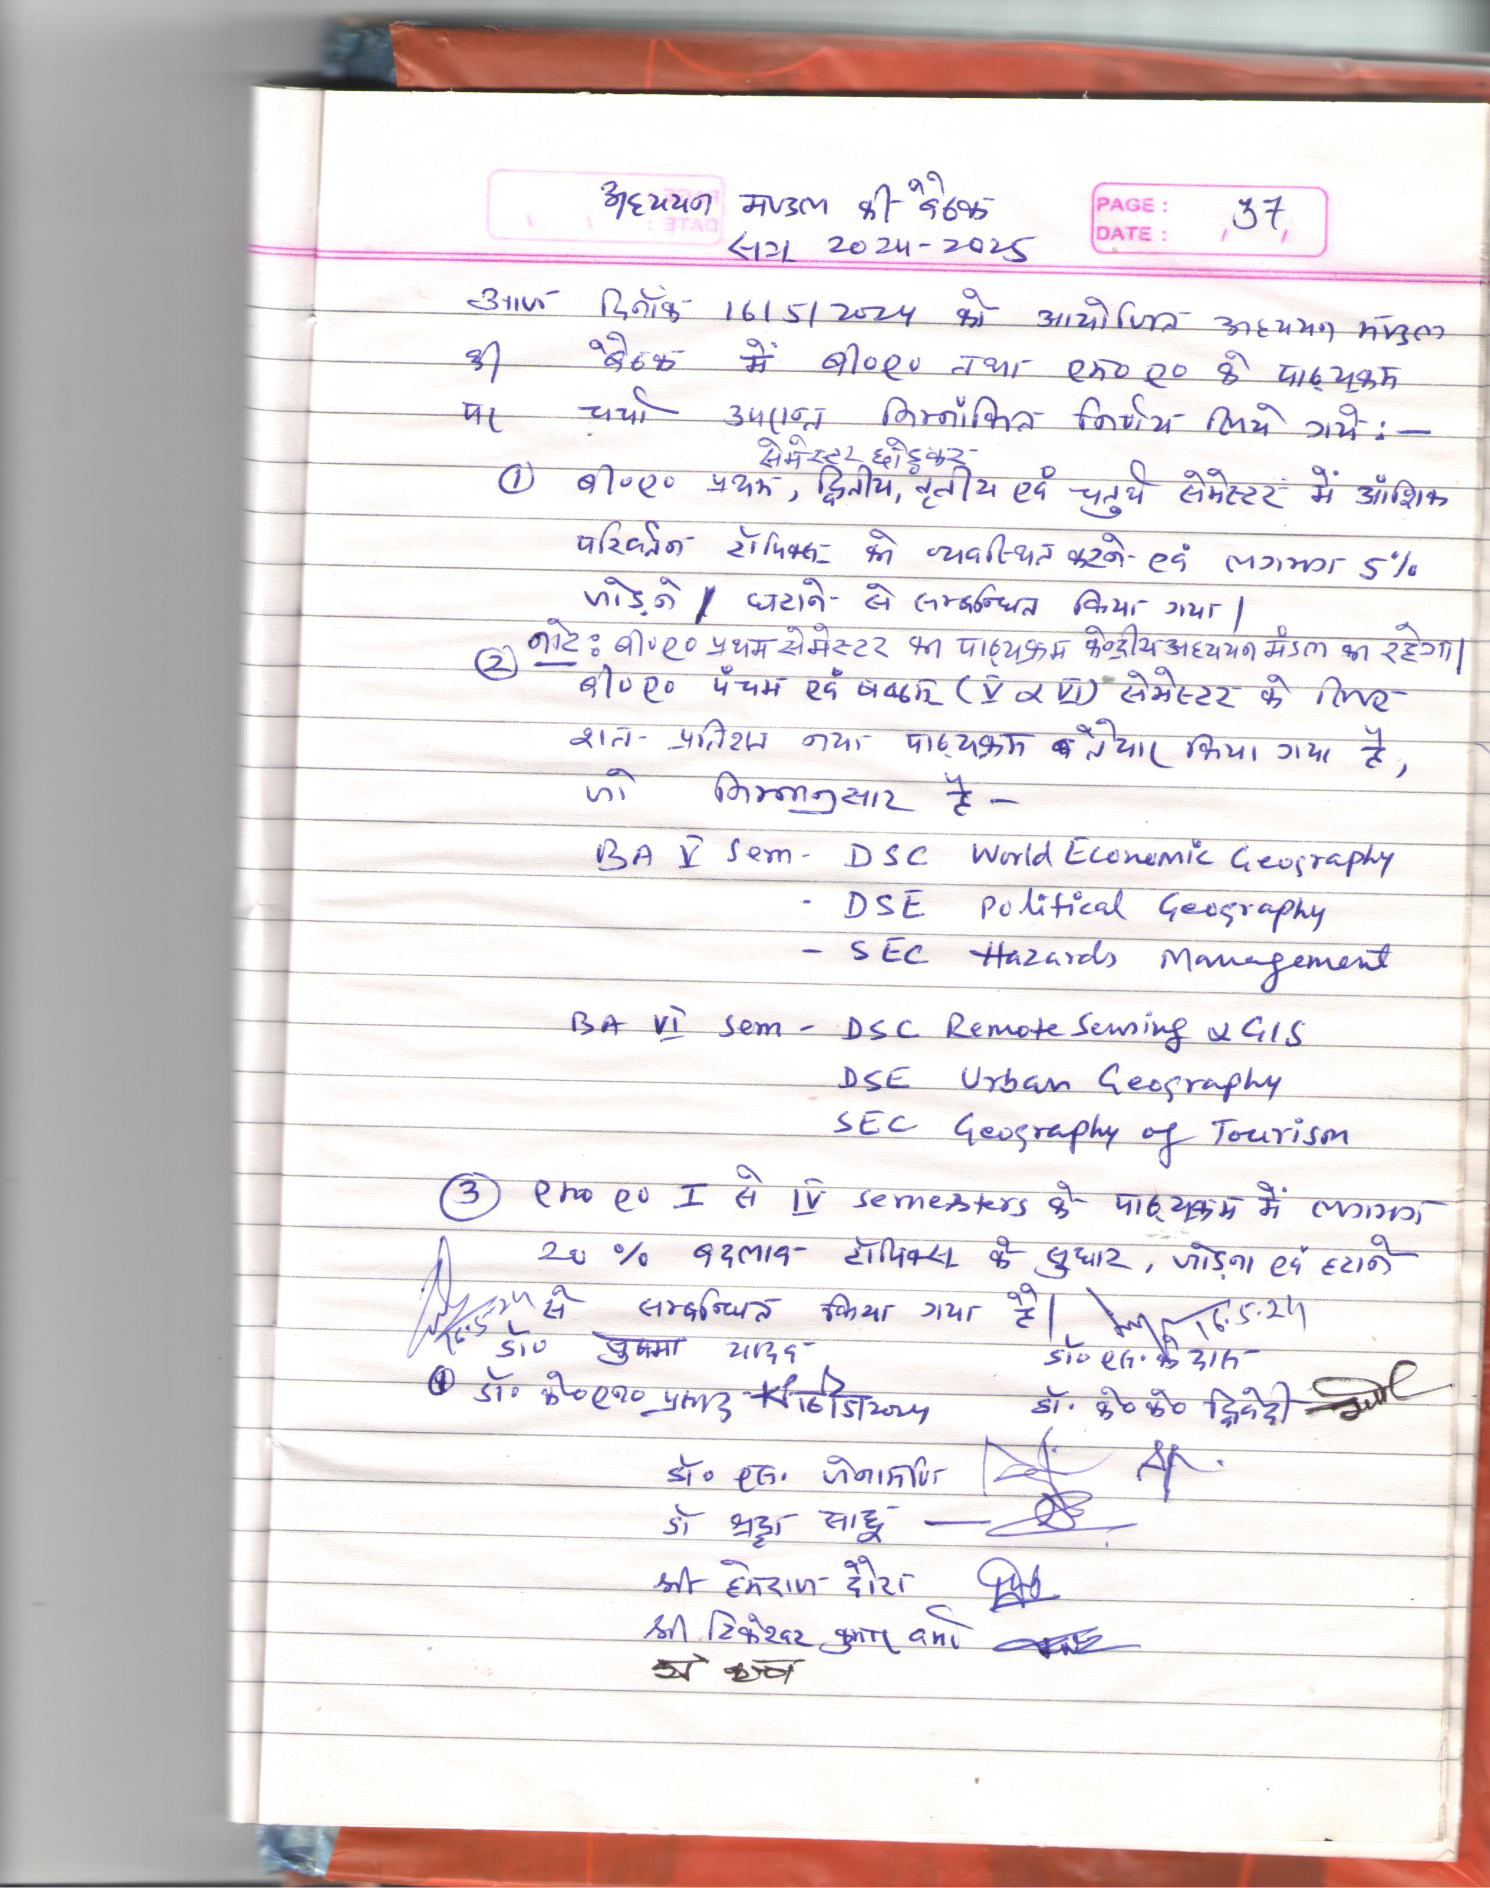 अध्ययन मण्डल की बैठक
सत्र 2024-2025
PAGE : 37
DATE :
आज दिनाँक 16/5/2024 को आयोजित अध्ययन मंण्डल
की बैठक में बी०ए० तथा एम०ए० के पाठ्यक्रम
पर चर्चा उपरान्त निम्नांकित निर्णय लिये गये :—
सेमेस्टर छोड़कर
① बी०ए० प्रथम, द्वितीय, तृतीय एवं चतुर्थ सेमेस्टर में आँशिक
परिवर्तन टॉपिक्स को व्यवस्थित करने एवं लगभग 5%
जोड़ने / घटाने से सम्बन्धित किया गया।
नोट : बी०ए० प्रथम सेमेस्टर का पाठ्यक्रम केन्द्रीय अध्ययन मंडल का रहेगा।
② बी०ए० पंचम एवं षष्ठम् (V & VI) सेमेस्टर के लिए
शत-प्रतिशत नया पाठ्यक्रम तैयार किया गया है,
जो निम्नानुसार है –
BA V Sem - DSC World Economic Geography
- DSE Political Geography
- SEC Hazards Management
BA VI Sem - DSC Remote Sensing & GIS
DSE Urban Geography
SEC Geography of Tourism
③ एम०ए० I से IV semesters के पाठ्यक्रम में लगभग
20 % बदलाव टॉपिक्स के सुधार, जोड़ना एवं हटाने
से सम्बन्धित किया गया है। 16.5.24
डॉ० सुषमा यादव डॉ० एस. के दास
डॉ. के०एन० प्रसाद 16/5/2024 डॉ. के० के० द्विवेदी
डॉ० एस. जेनामणि
डॉ श्रद्धा साहू —
श्री हेमराज
श्री टिकेश्वर कुमार वर्मा